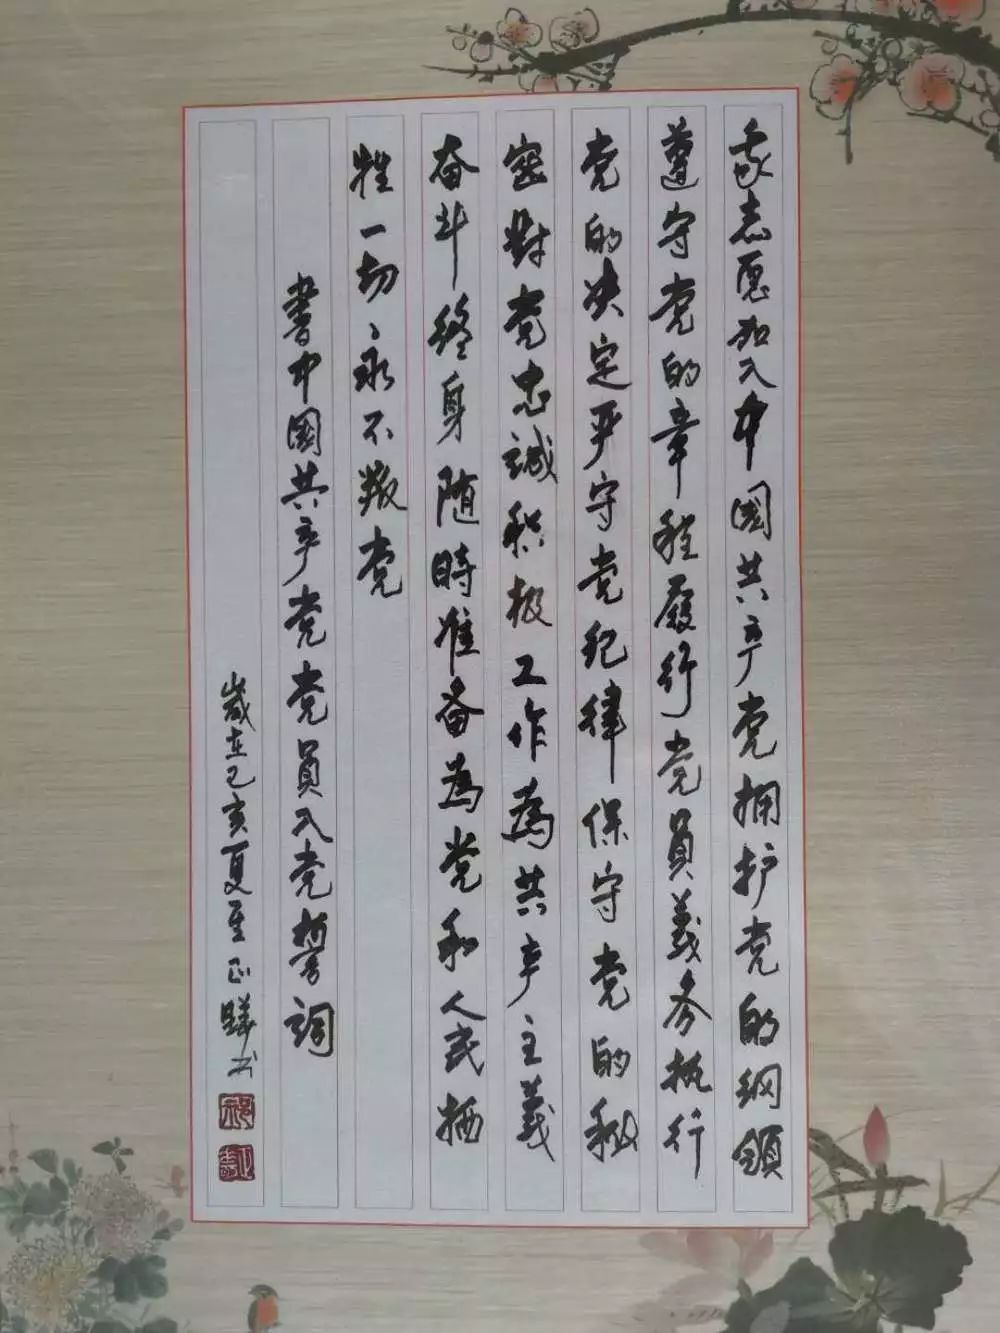 我志愿加入中國共产党拥护党的纲領
遵守党的章程履行党員義务执行
党的决定严守党纪律保守党的秘
密對党忠誠积极工作為共产主義
奋斗终身随時准备為党和人民牺
牲一切、永不叛党
書中國共产党党員入党誓詞
歲在己亥夏至正书